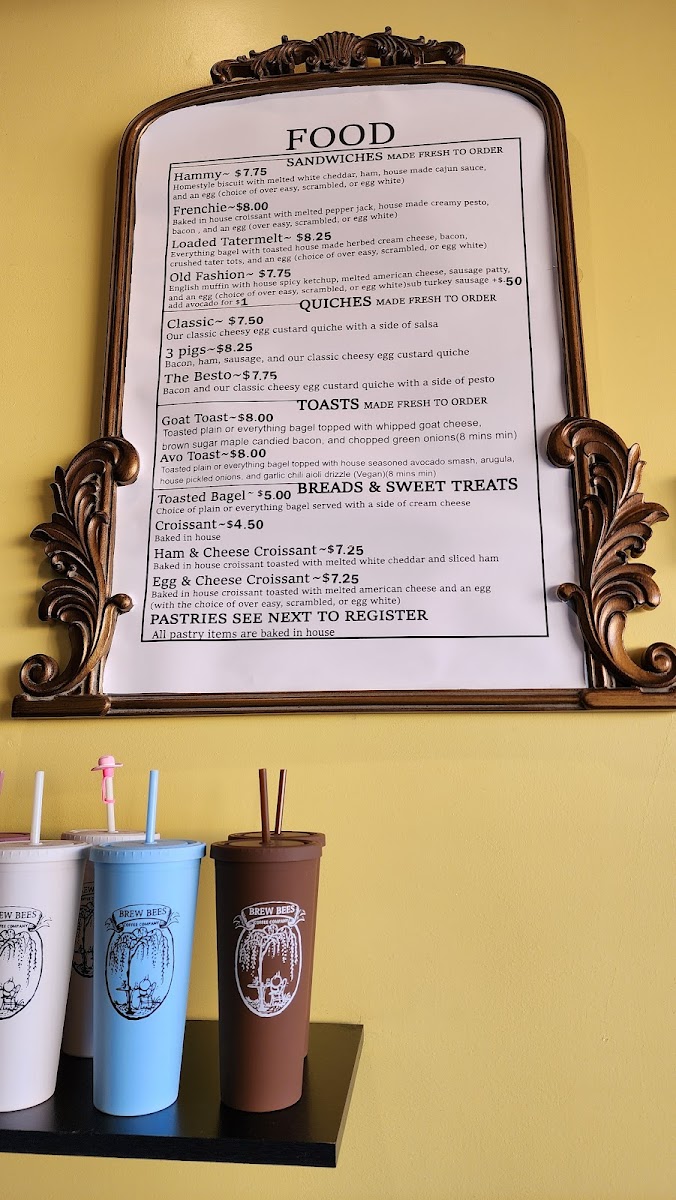 FOOD
SANDWICHES MADE FRESH TO ORDER
Hammy~ $7.75
Homestyle biscuit with melted white cheddar, ham, house made cajun sauce,
and an egg (choice of over easy, scrambled, or egg white)
Frenchie~$8.00
Baked in house croissant with melted pepper jack, house made creamy pesto,
bacon , and an egg (over easy, scrambled, or egg white)
Loaded Tatermelt~ $8.25
Everything bagel with toasted house made herbed cream cheese, bacon,
crushed tater tots, and an egg (choice of over easy, scrambled, or egg white)
Old Fashion~ $7.75
English muffin with house spicy ketchup, melted american cheese, sausage patty,
and an egg (choice of over easy, scrambled, or egg white)sub turkey sausage +$.50
add avocado for $1
QUICHES MADE FRESH TO ORDER
Classic~ $7.50
Our classic cheesy egg custard quiche with a side of salsa
3 pigs~$8.25
Bacon, ham, sausage, and our classic cheesy egg custard quiche
The Besto~$7.75
Bacon and our classic cheesy egg custard quiche with a side of pesto
TOASTS MADE FRESH TO ORDER
Goat Toast~$8.00
Toasted plain or everything bagel topped with whipped goat cheese,
brown sugar maple candied bacon, and chopped green onions(8 mins min)
Avo Toast~$8.00
Toasted plain or everything bagel topped with house seasoned avocado smash, arugula,
house pickled onions, and garlic chili aioli drizzle (Vegan)(8 mins min)
BREADS & SWEET TREATS
Toasted Bagel~ $5.00
Choice of plain or everything bagel served with a side of cream cheese
Croissant~$4.50
Baked in house
Ham & Cheese Croissant~$7.25
Baked in house croissant toasted with melted white cheddar and sliced ham
Egg & Cheese Croissant ~$7.25
Baked in house croissant toasted with melted american cheese and an egg
(with the choice of over easy, scrambled, or egg white)
PASTRIES SEE NEXT TO REGISTER
All pastry items are baked in house
EW BEES
COFFEE COMPANY
BREW BEES
COFFEE COMPANY
BREW BEES
COFFEE COMPANY